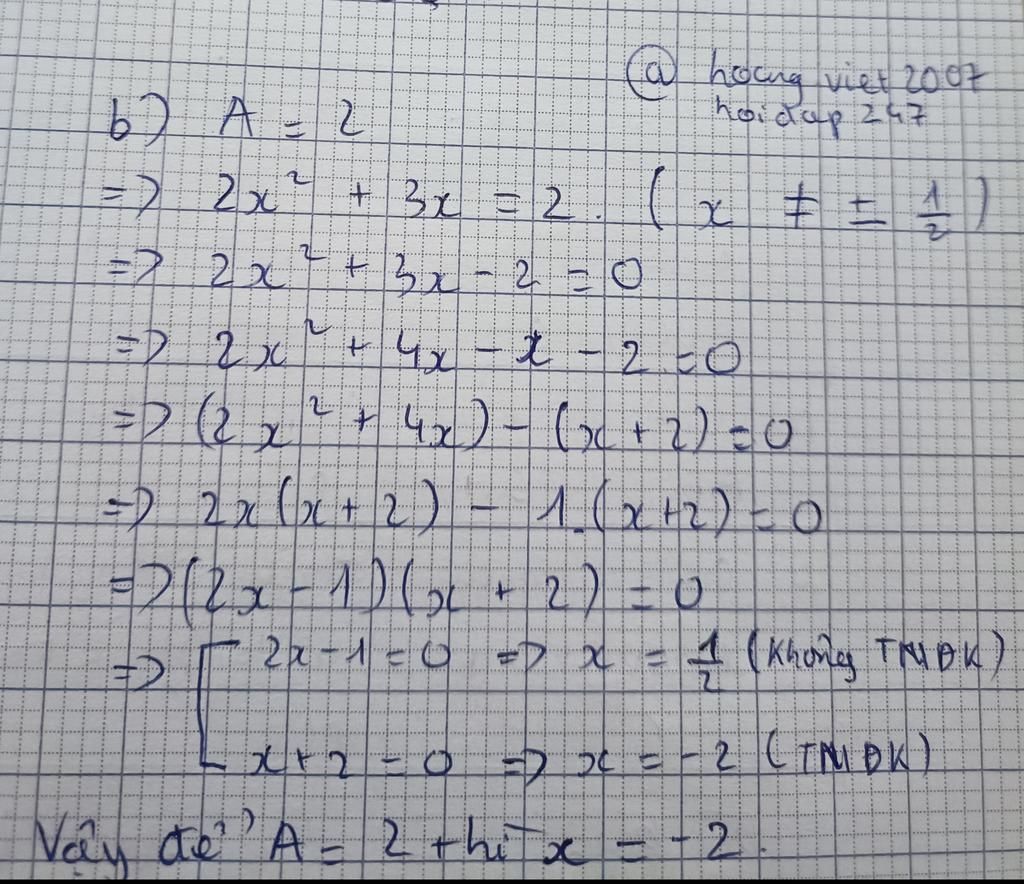 @ hoang viet 2007
hoidap 247
b) A = 2
=> 2x² + 3x = 2. (x ≠ ± 1/2)
=> 2x² + 3x - 2 = 0
=> 2x² + 4x - x - 2 = 0
=> (2x² + 4x) - (x + 2) = 0
=> 2x(x + 2) - 1.(x+2) = 0
=> (2x - 1)(x + 2) = 0
=> [ 2x - 1 = 0 => x = 1/2 (Không TMĐK)
x + 2 = 0 => x = -2 (TMĐK)
Vậy để A = 2 thì x = -2.